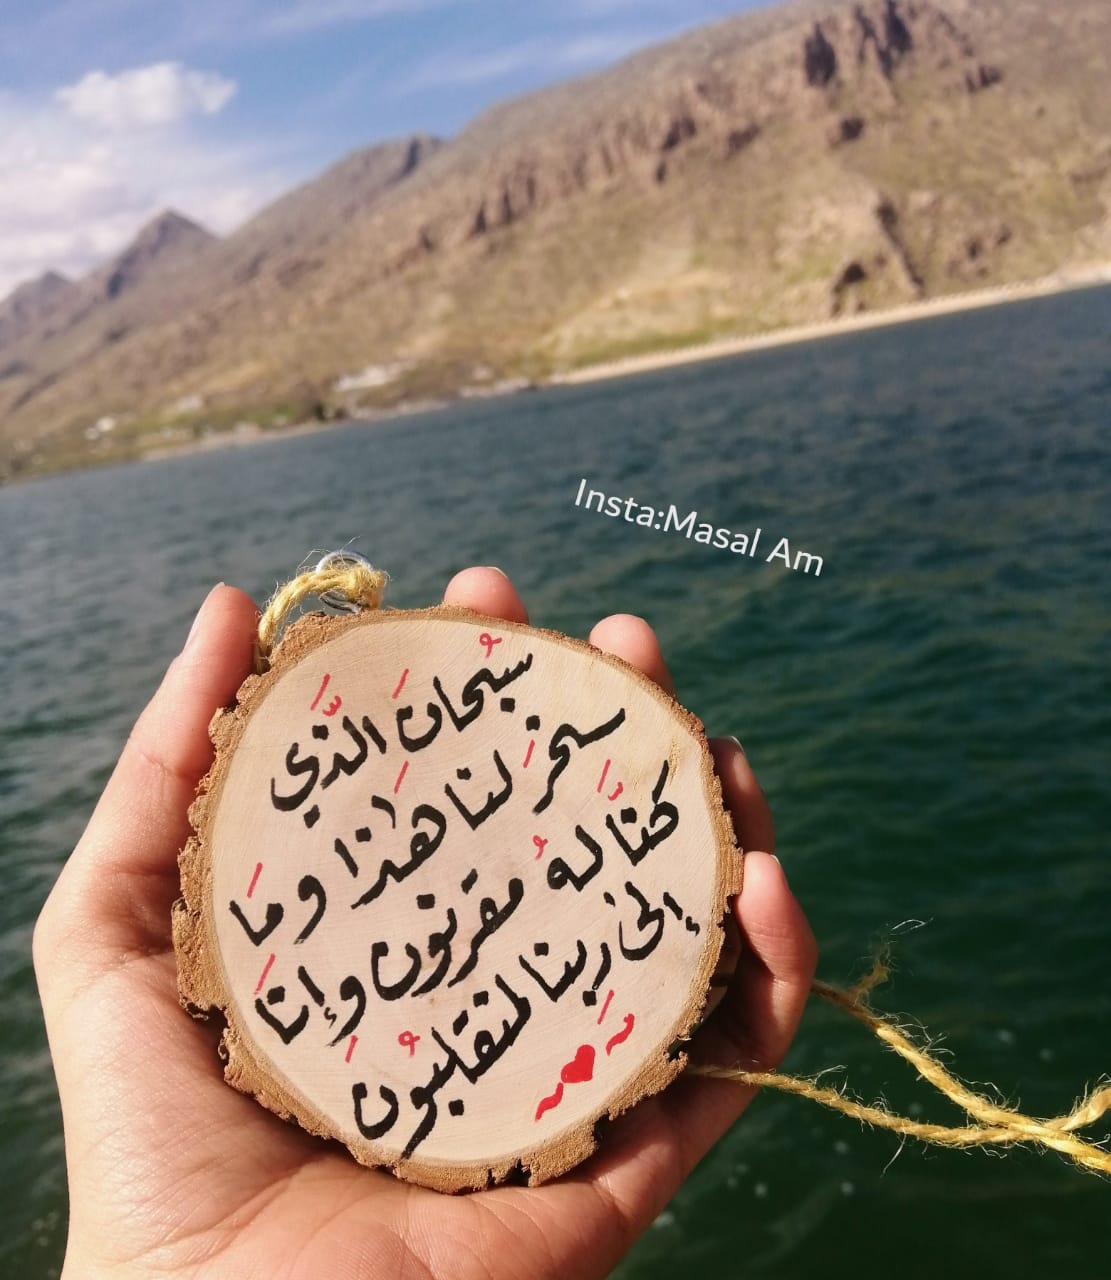 Insta:Masal Am
سُبْحانَ الذَّي
سخرَ لنا هَذا ومَا
كنَّا لهُ مقرنون وإنَا
إلىٰ رَبنا لمنقلبُون